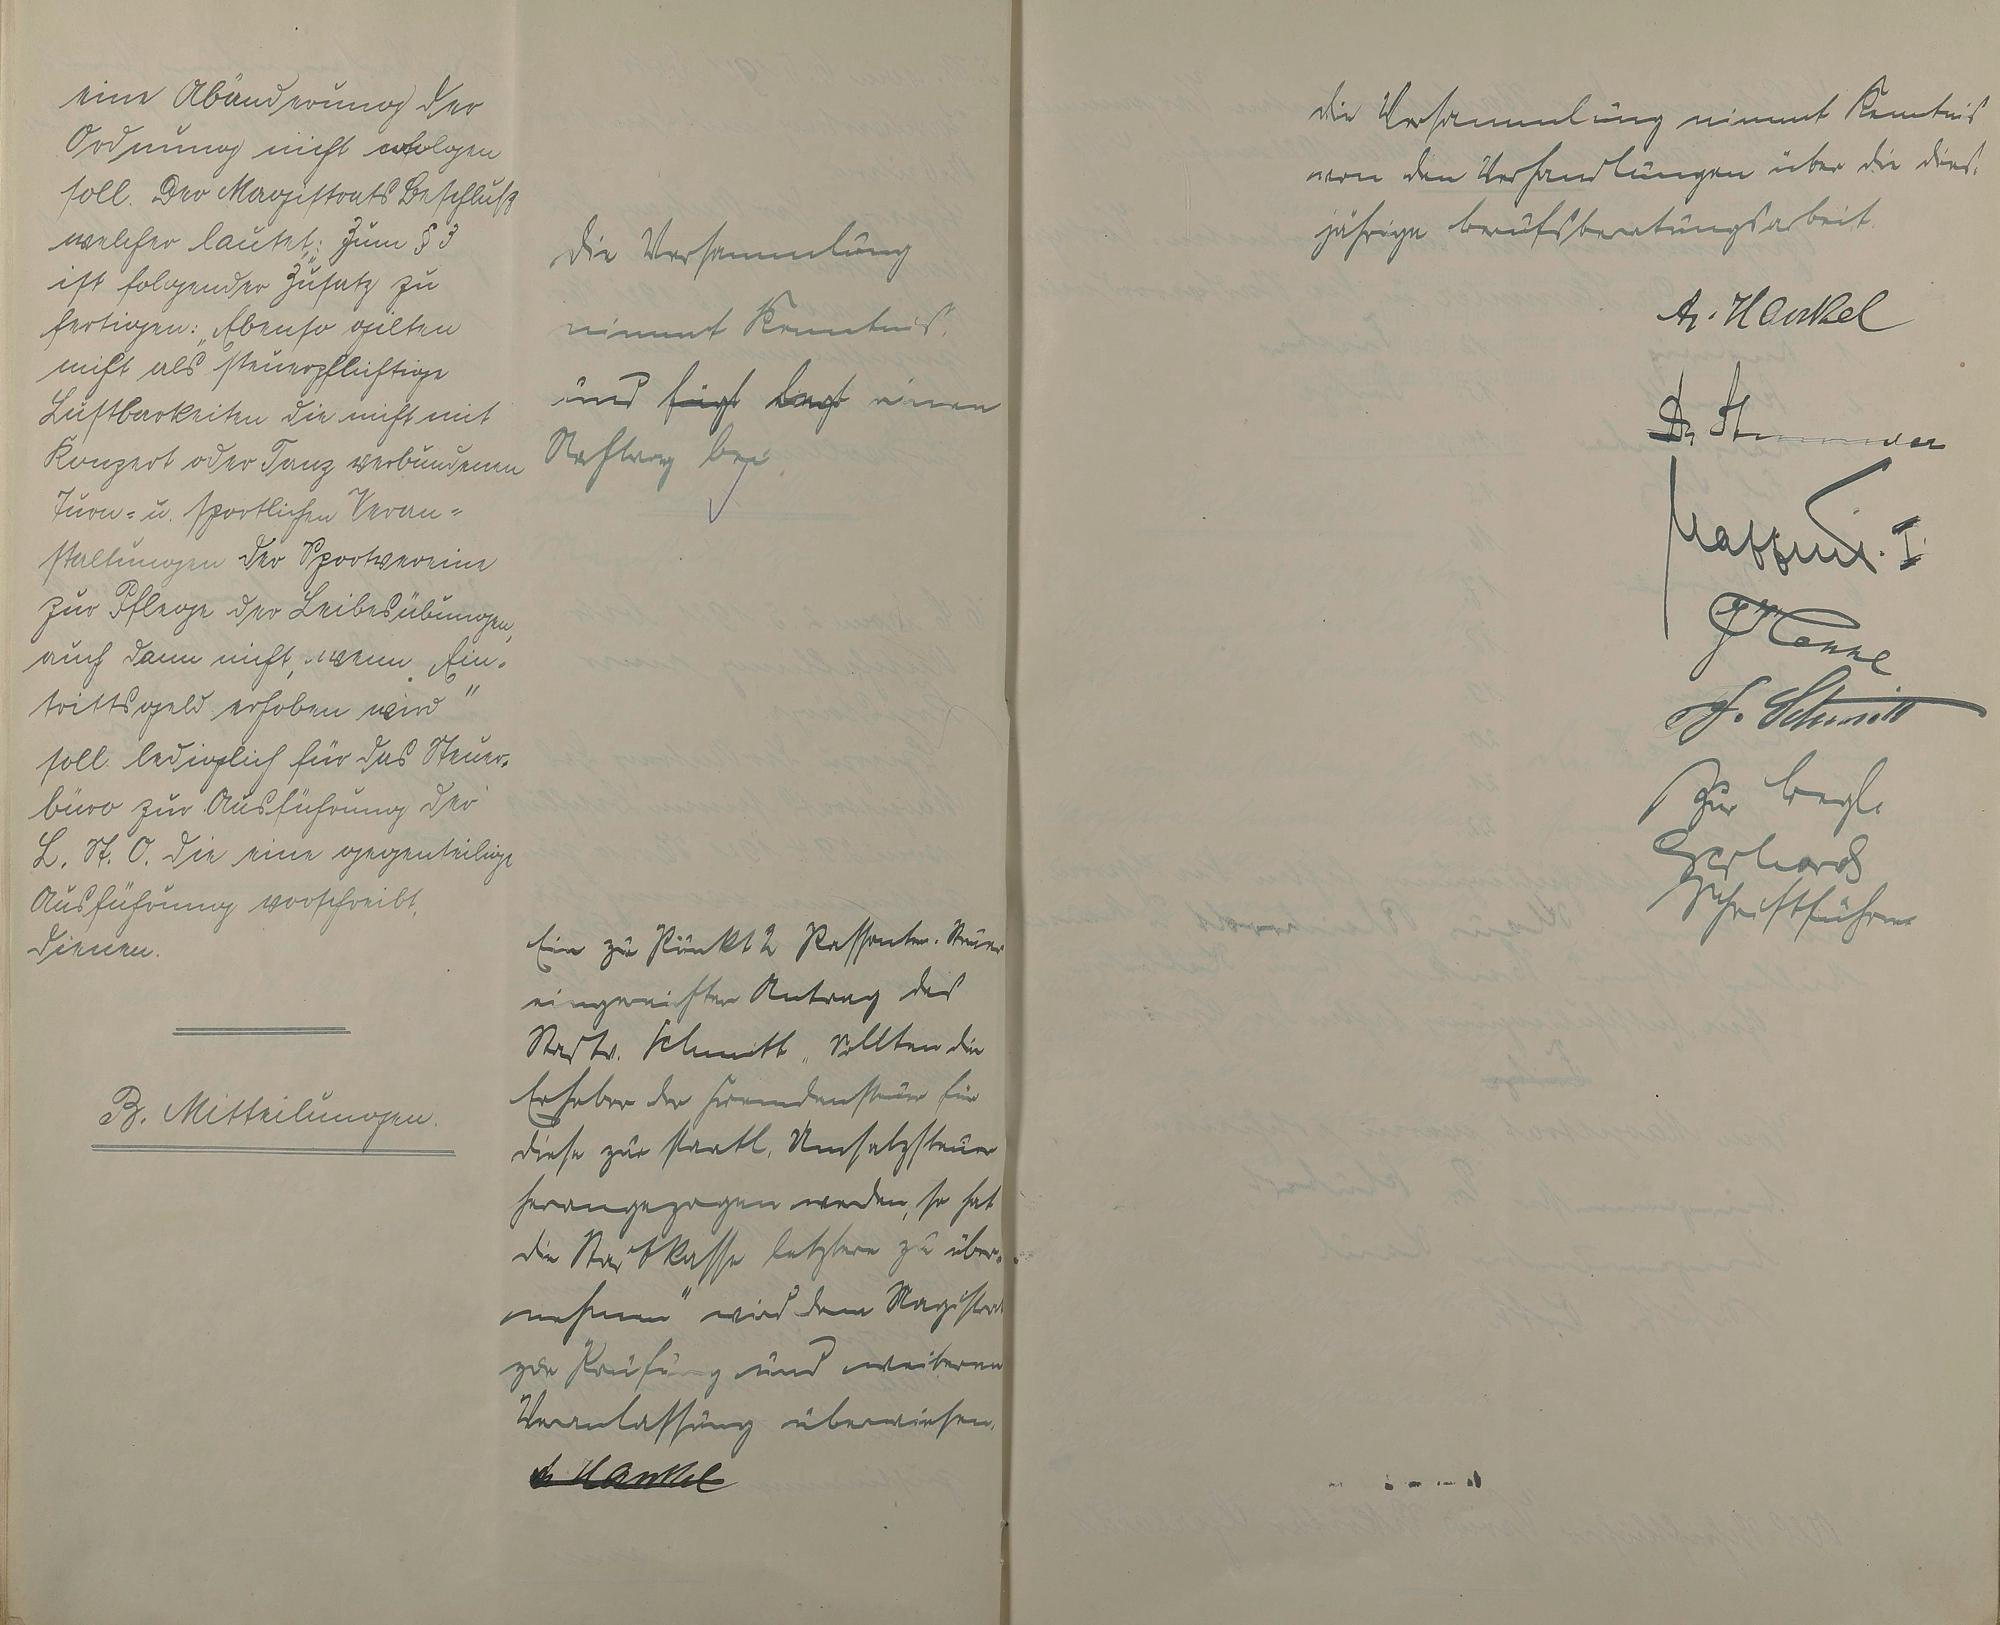 eine Abänderung der
Ordnung nicht erfolgen
soll. Der Magistrats Beschluß
welcher lautet: „Zum § 3
ist folgender Zusatz zu
fertigen: „Ebenso gilten
nicht als steuerpflichtige
Lustbarkeiten die nicht mit
Konzert oder Tanz verbundenen
Turn- u. sportlichen Veran-
staltungen der Sportvereine
zur Pflege der Leibesübungen,
auch dann nicht, wenn Ein-
trittsgeld erhoben wird"
soll lediglich für das Steuer-
büro zur Ausführung der
L. St. O. die eine gegenteilige
Ausführung vorschreibt,
dienen.
B. Mitteilungen.
die Versammlung
nimmt Kenntnis.
und fügt legt einen
Nachtrag bei.
Ein zu Punkt 2 Passanten-Steuer
eingereichter Antrag des
Stadtv. Schmitt „Sollten die
Erheber der Fremdensteuer für
diese zur staatl. Umsatzsteuer
herangezogen werden, so hat
die Stadtkasse letztere zu über-
nehmen" wird dem Magistrat
zur Prüfung und weiteren
Veranlassung überwiesen.
Dr. Hankel
die Versammlung nimmt Kenntnis
von den Verhandlungen über die dies-
jährige Berufsberatungsarbeit.
Dr. Hankel
Dr.
I.
Schmitt
Zur Begl.
Gerhards
Schriftführer